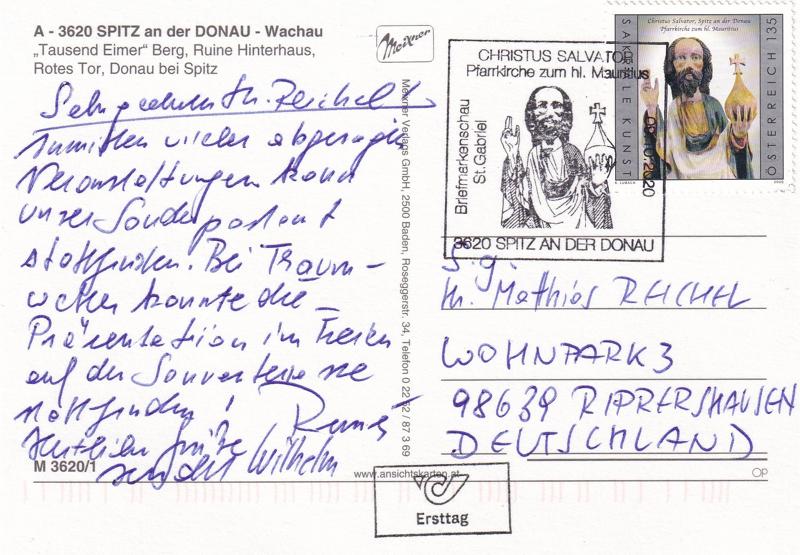 A - 3620 SPITZ an der DONAU - Wachau
„Tausend Eimer“ Berg, Ruine Hinterhaus,
Rotes Tor, Donau bei Spitz
Meixner
Sehr geehrter Hr. Reichel
Inmitten vieler abgesagter
Veranstaltungen kann
unser Sonderpostamt
stattfinden. Bei Traum-
wetter konnte die
Präsentation im Freien
auf der Sonnenterrasse
stattfinden!
Herzliche Grüße
sendet Wilhelm
M 3620/1
Meixner Verlags GmbH, 2500 Baden, Roseggerstr. 34, Telefon 0 22 52 / 87 3 69
www.ansichtskarten.at
OP
CHRISTUS SALVATOR
Pfarrkirche zum hl. Mauritius
Briefmarkenschau
St. Gabriel
09.10.2020
3620 SPITZ AN DER DONAU
Christus Salvator, Spitz an der Donau
Pfarrkirche zum hl. Mauritius
SAKRALE KUNST
ÖSTERREICH 135
2020
S.g.
Hr. Mathias REICHEL
WOHNPARK 3
98639 RIPPERSHAUSEN
DEUTSCHLAND
Ersttag